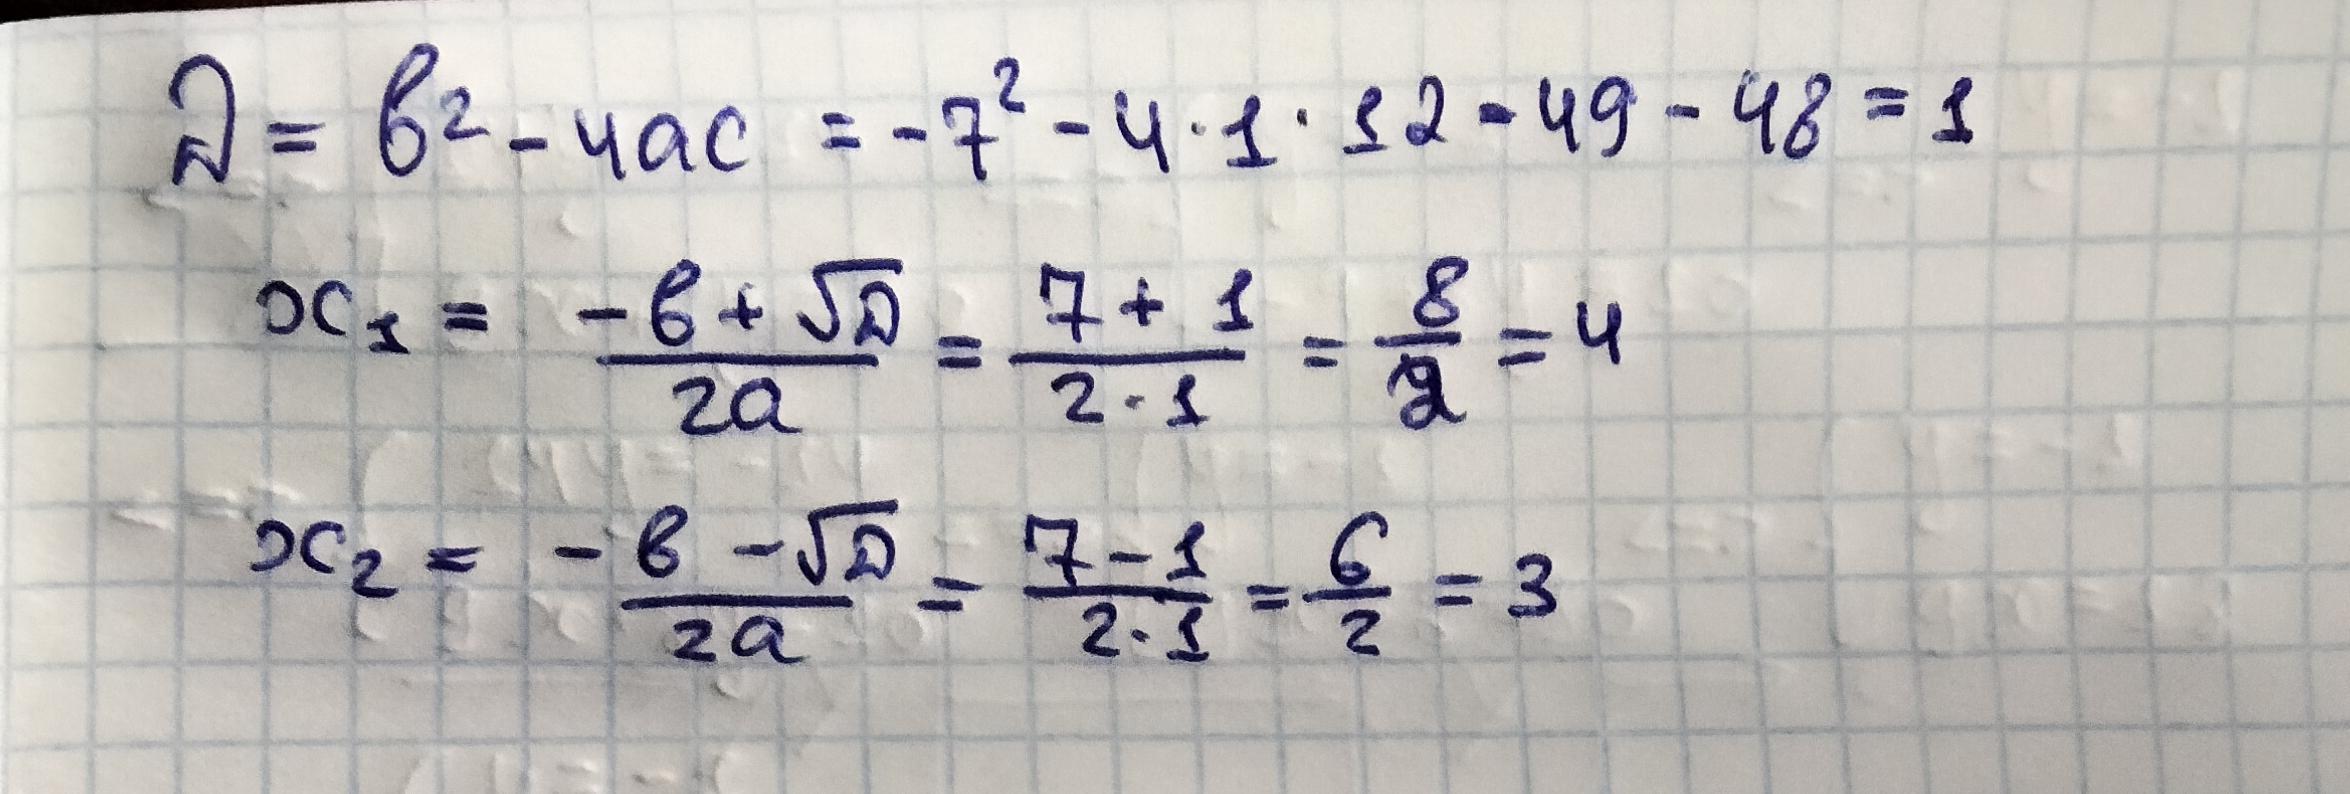 D = b² - 4ac = -7² - 4·1·12 - 49 - 48 = 1
x₁ = (-b + √D)/(2a) = (7 + 1)/(2·1) = 8/2 = 4
x₂ = (-b - √D)/(2a) = (7 - 1)/(2·1) = 6/2 = 3